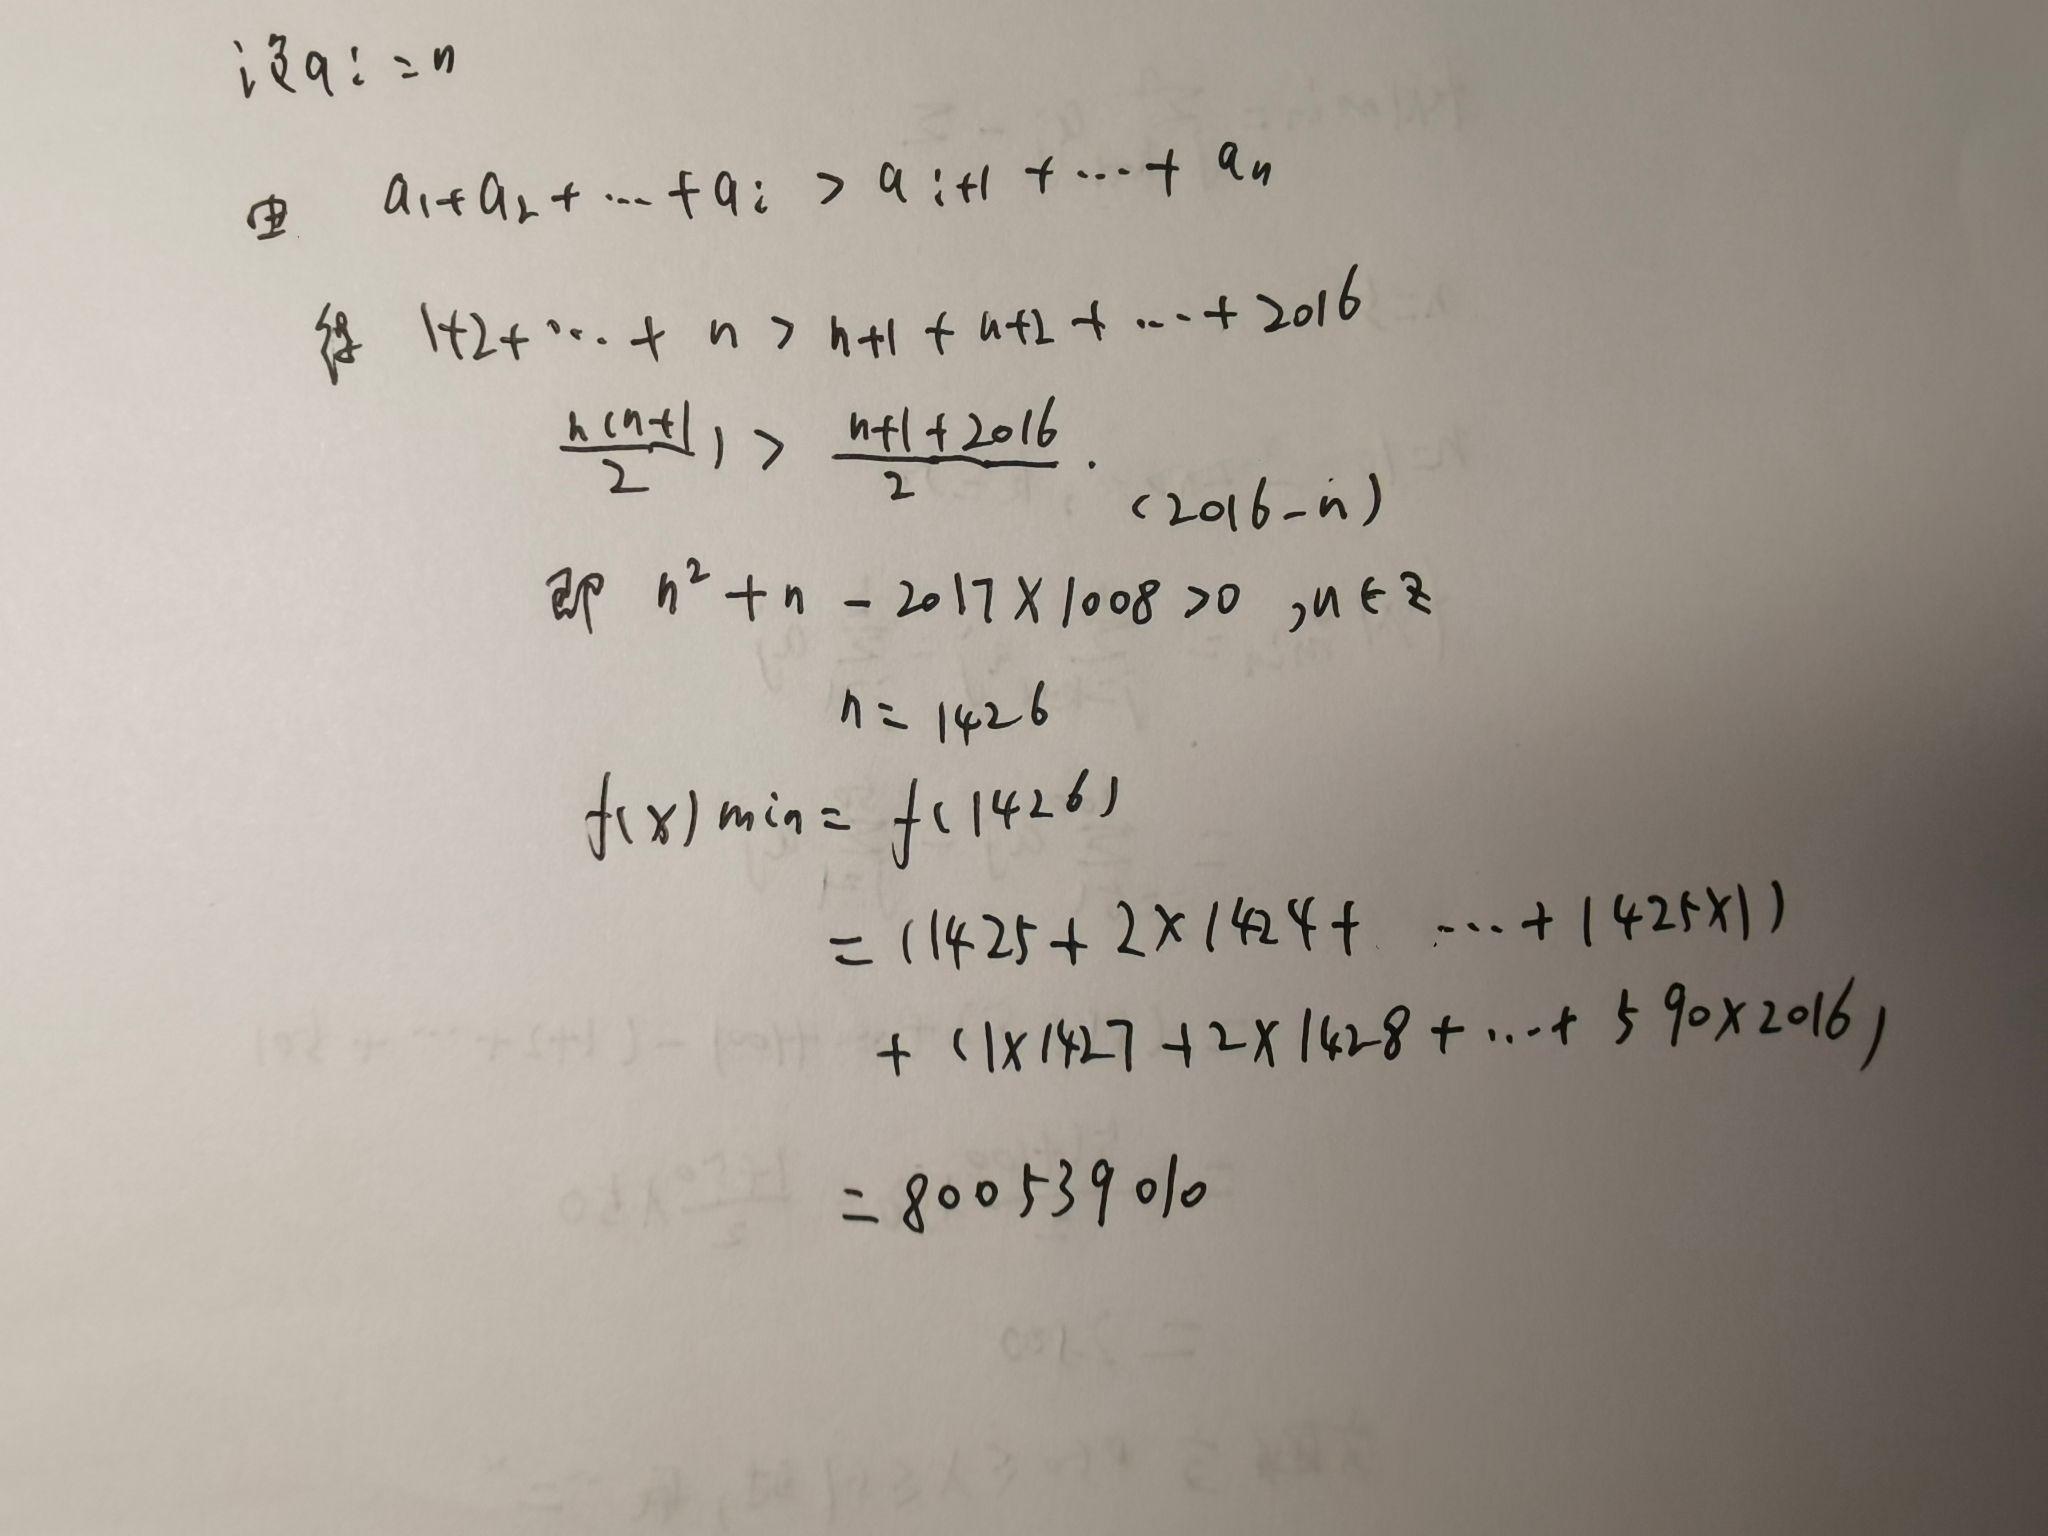 设ai=n
由 a₁+a₂+...+ai > ai+1+...+an
得 1+2+...+n>n+1+n+2+...+2016
n(n+1)/2 > (n+1+2016)/2 · (2016-n)
即 n²+n-2017×1008>0,n∈Z
n=1426
f(x)min=f(1426)
=(1425+2×1424+...+1425×1)
+(1×1427+2×1428+...+590×2016)
=800539010